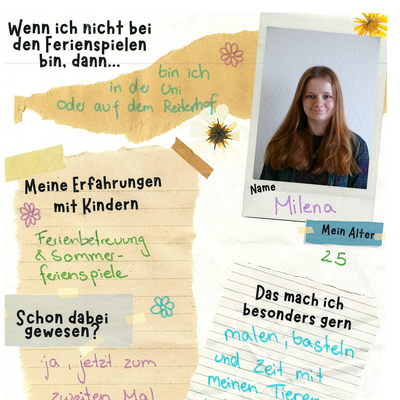 Wenn ich nicht bei
den Ferienspielen
bin, dann...
bin ich
in der Uni
oder auf dem Reiterhof
Name
Milena
Mein Alter
25
Meine Erfahrungen
mit Kindern
Ferienbetreuung
& Sommer-
ferienspiele
Schon dabei
gewesen?
ja, jetzt zum
zweiten Mal
Das mach ich
besonders gern
malen, basteln
und Zeit mit
meinen Tieren